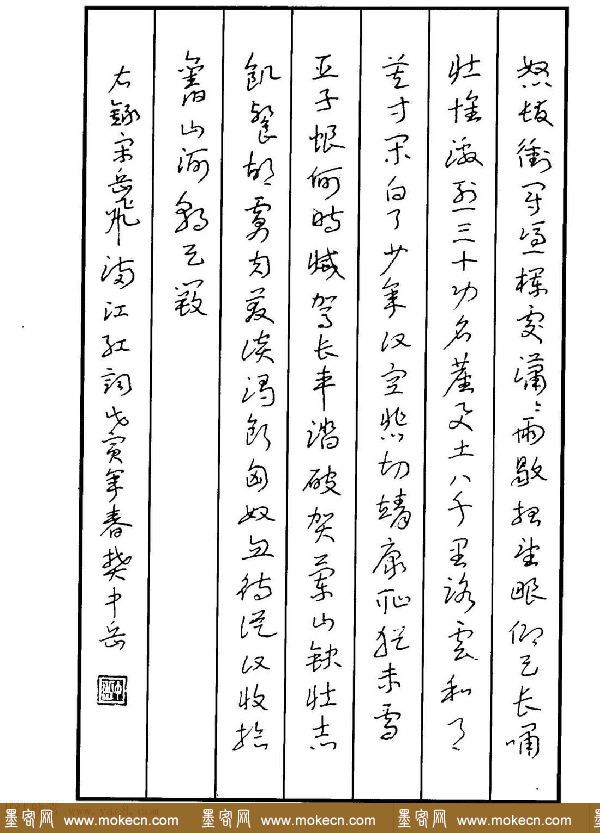 怒髮衝冠凭栏處瀟〻雨歇抬望眼仰天长啸
壮懷激烈三十功名塵与土八千里路雲和月
莫等闲白了少年头空悲切靖康耻犹未雪
臣子恨何時滅驾长車踏破贺蘭山缺壮志
飢餐胡虜肉笑谈渴飲匈奴血待從头收拾
舊山河朝天闕
右録宋岳飛满江红詞戊寅年春樊中岳
墨客网 www.mokecn.com 墨客网 www.mokecn.com 墨客网 www.mokecn.com 墨客网